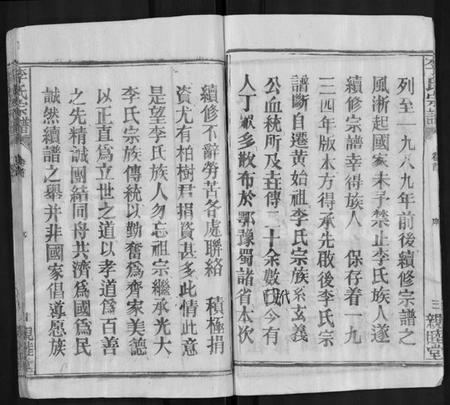 李氏宗譜
列至一九八九年前後續修宗譜之
風漸起國家未予禁止李氏族人遂
續修宗譜幸得族人 保存着一九
三四年版本方得承先啟後李氏宗
譜斷自遷黃始祖李氏宗族系玄義
公血稅所及壵傳二十余數代今有
人丁眾多散布於鄂豫蜀諸省本次
三 親睦堂
續修不辭勞苦各處聯絡 積極捐
資尤有柏樹君捐資甚多此情此意
是望李氏族人勿忘祖宗繼承光大
李氏宗族傳統以勤奮為齊家美德
以正直為立世之道以孝道為百善
之先精誠團結同舟共濟為國為民
誠然續譜之舉并非國家倡導愿族
李氏宗譜
親睦堂